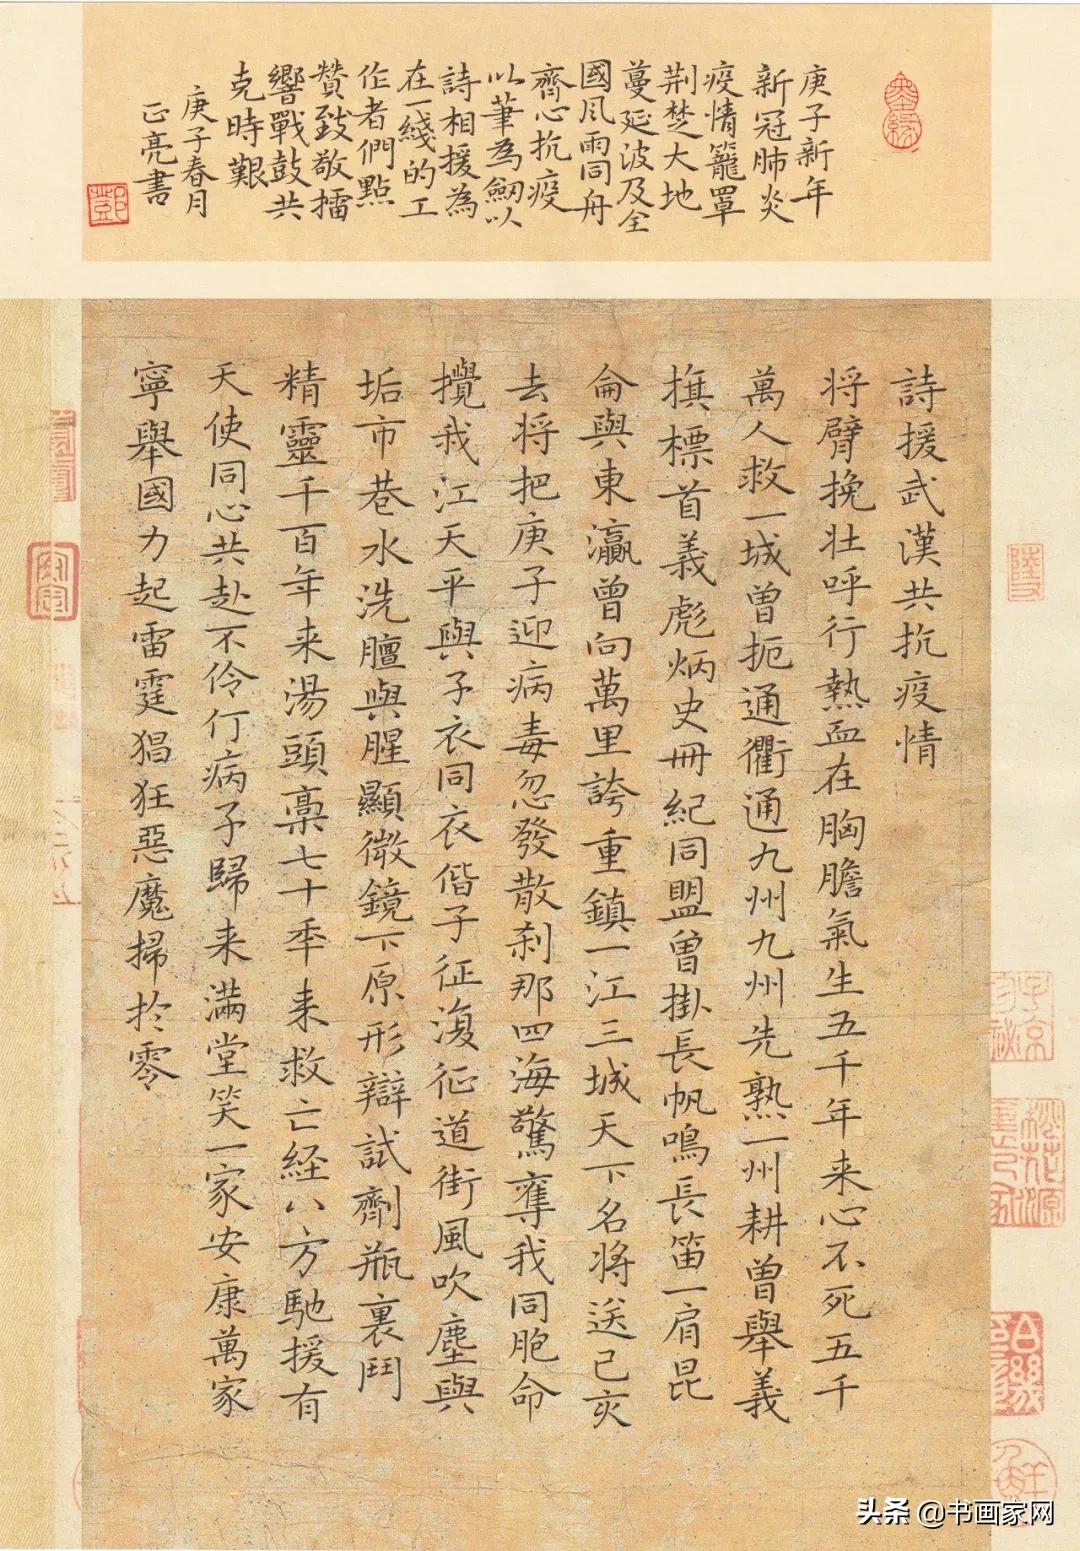 庚子新年
新冠肺炎
疫情籠罩
荆楚大地
蔓延波及全
國風雨同舟
齊心抗疫
以筆為劒以
詩相援為
在一綫的工
作者們點
贊致敬擂
響戰鼓共
克時艱
庚子春月
正亮書
詩援武漢共抗疫情
将臂挽壮呼行熱血在胸膽氣生五千年来心不死五千
萬人救一城曾扼通衢在通九州九州先熟一州耕曾舉義
旗標首義彪炳史冊紀同盟曾掛長帆鳴長笛一肩昆
侖與東瀛曾向萬里誇重鎮一江三城天下名将送己亥
去将把庚子迎病毒忽發散刹那四海驚奪我同胞命
攪我江天平與子衣同衣偕子征復征道街風吹塵與
垢市巷水洗膻與腥顯微鏡下原形辯試劑瓶裏鬥
精靈千百年来湯頭稾七十年来救亡経八方馳援有
天使同心共赴不伶仃病子歸来满堂笑一家安康萬家
寧舉國力起雷霆猖狂惡魔掃扵零
头条 @书画家网